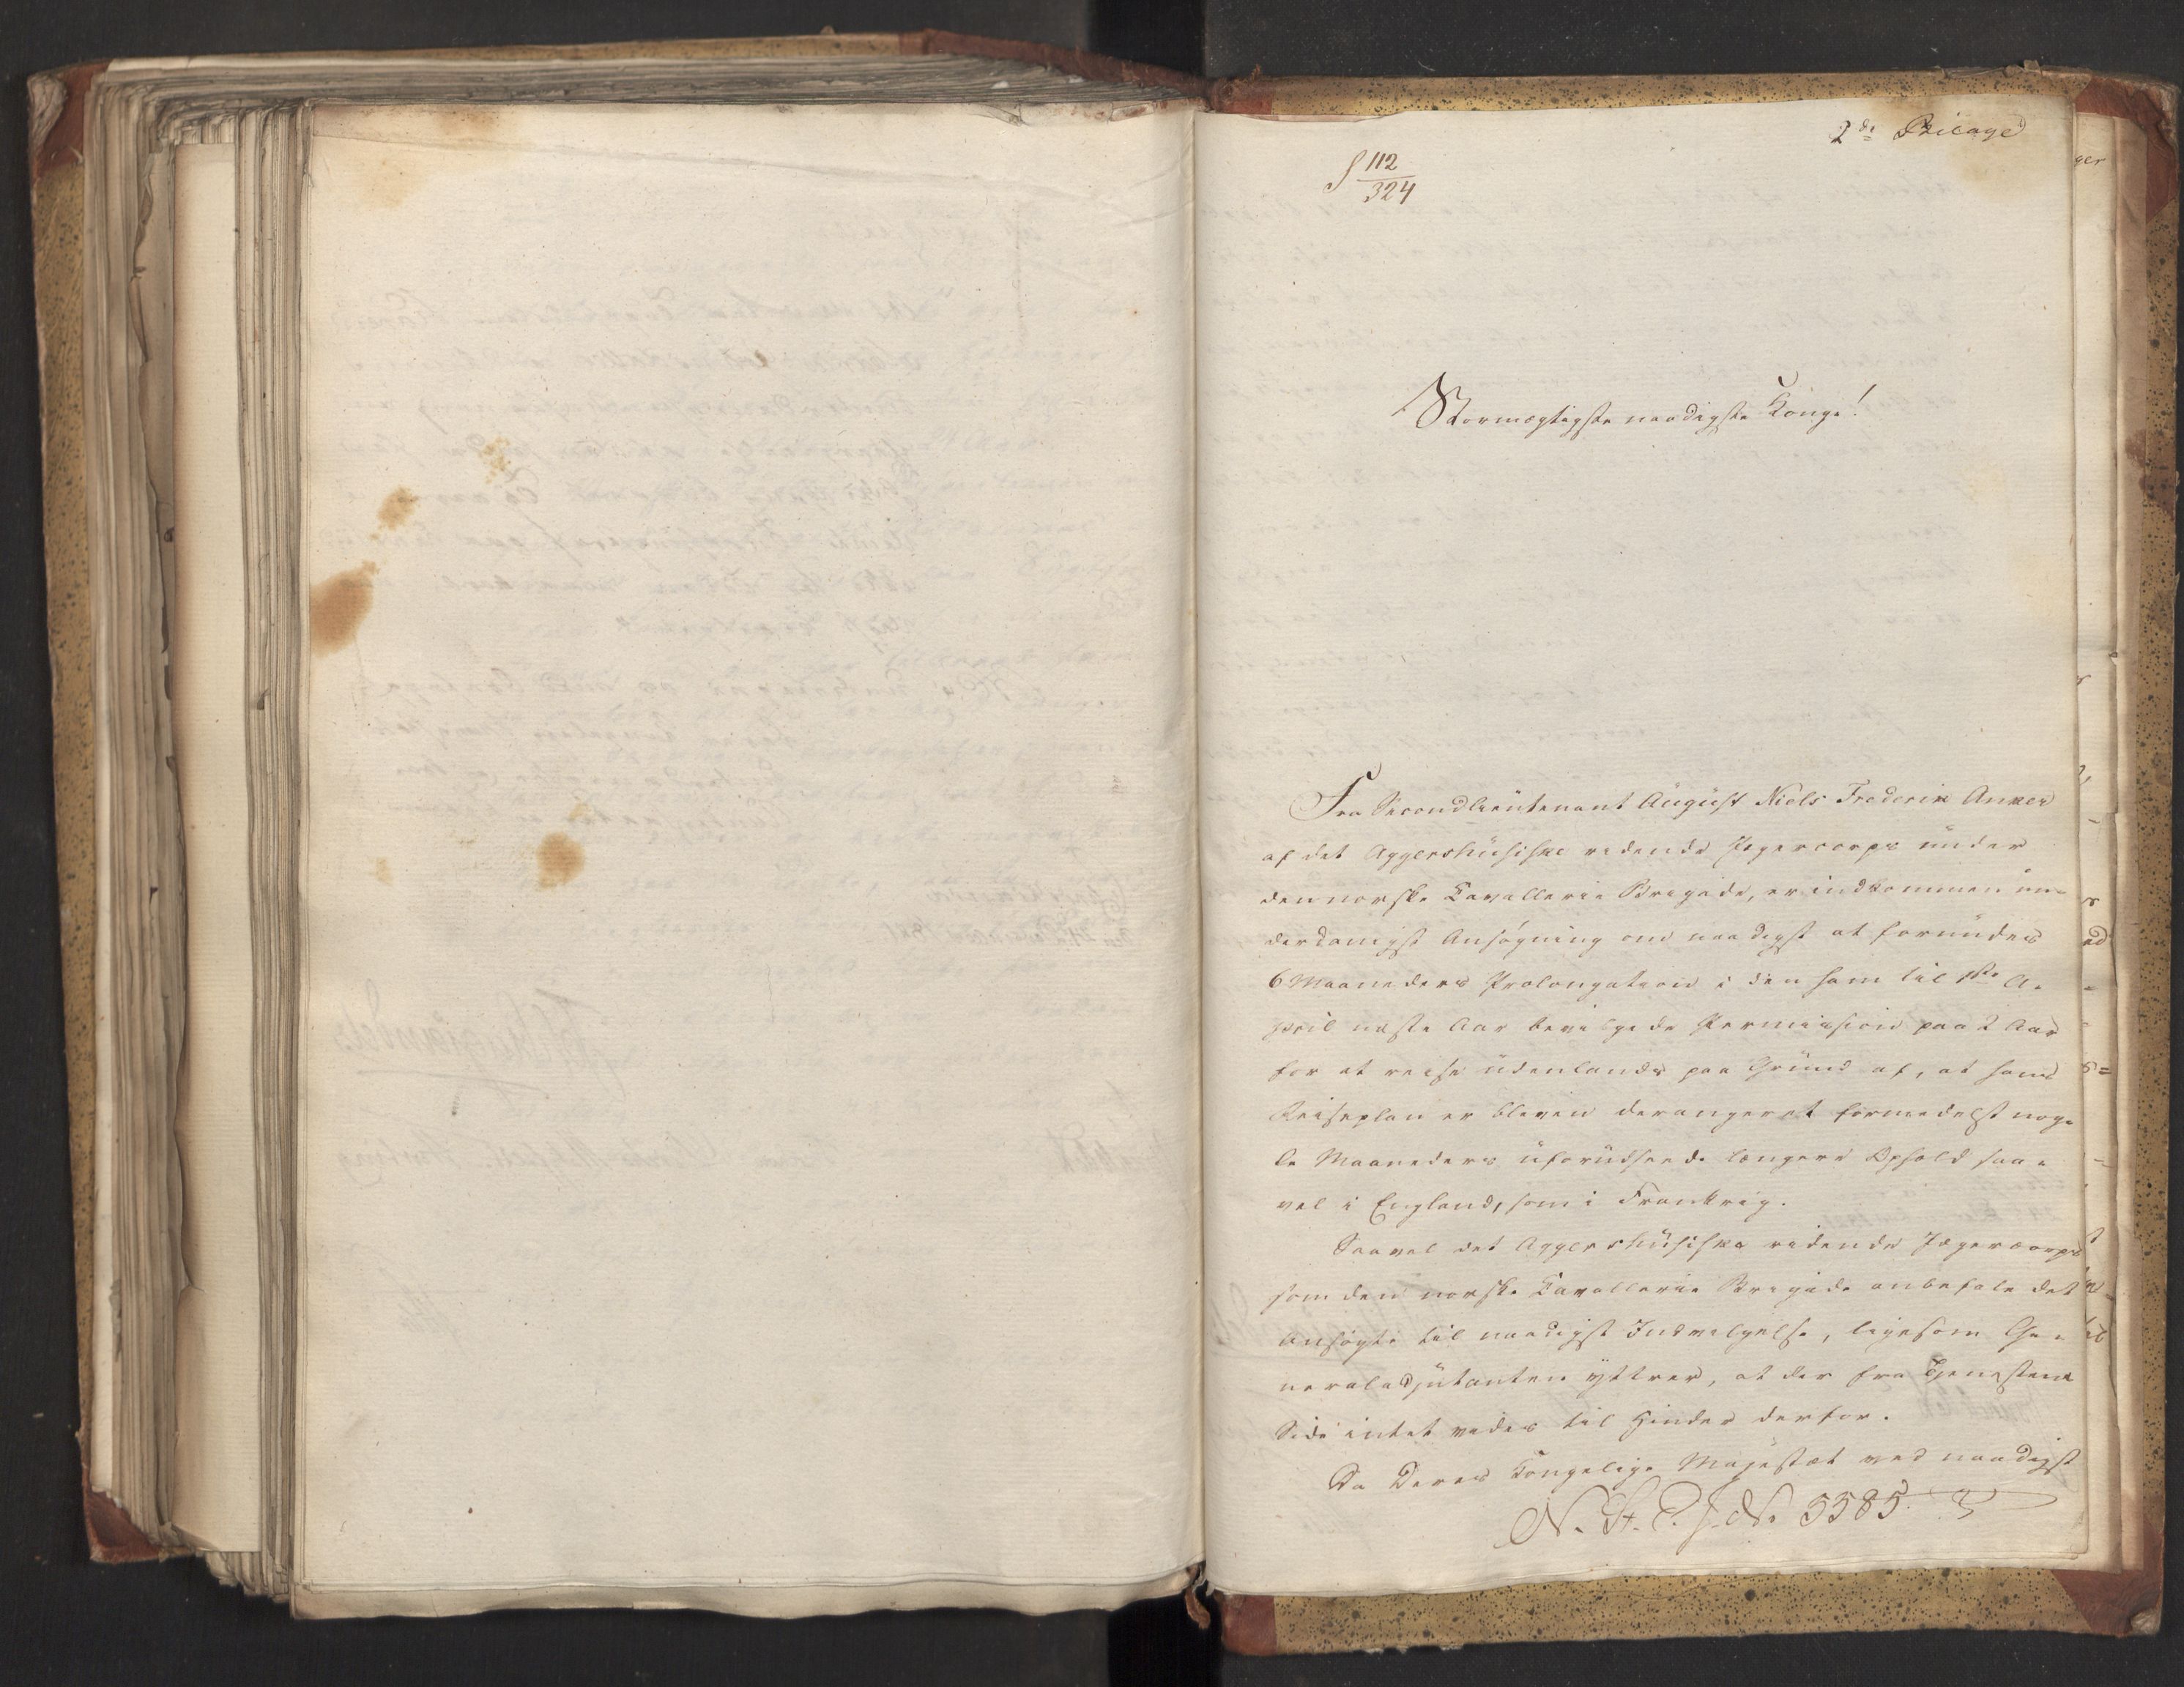 2de Bilage
S 112/324
Stormægtigste naadigste Konge!
Fra Secondlieutenant August Niels Frederik Anker
af det Aggershusiske ridende Jægercorps under
den norske Cavallerie Brigade, er indkommen un-
derdanigst Ansøgning om naadigst at forundes
6 Maaneders Prolongation i den ham til 1ste A-
pril næste Aar bevilgede Permission paa 2 Aar
for at reise udenlands paa Grund af, at hans
Reiseplan er bleven derangeret formedelst nog-
le Maaneders uforudseede længere Ophold saa-
vel i England, som i Frankrig.
Saavel det Aggershusiske ridende Jægercorps
som den norske Cavallerie Brigade anbefale det
Ansøgte til naadigst Indvilgelse, ligesom Ge-
neraladjutanten yttrer, at der fra Tjenestens
Side intet vides til Hinder derfor.
Da Deres Kongelige Majestæt ved naadigst
N. St. E. J. No 5585.